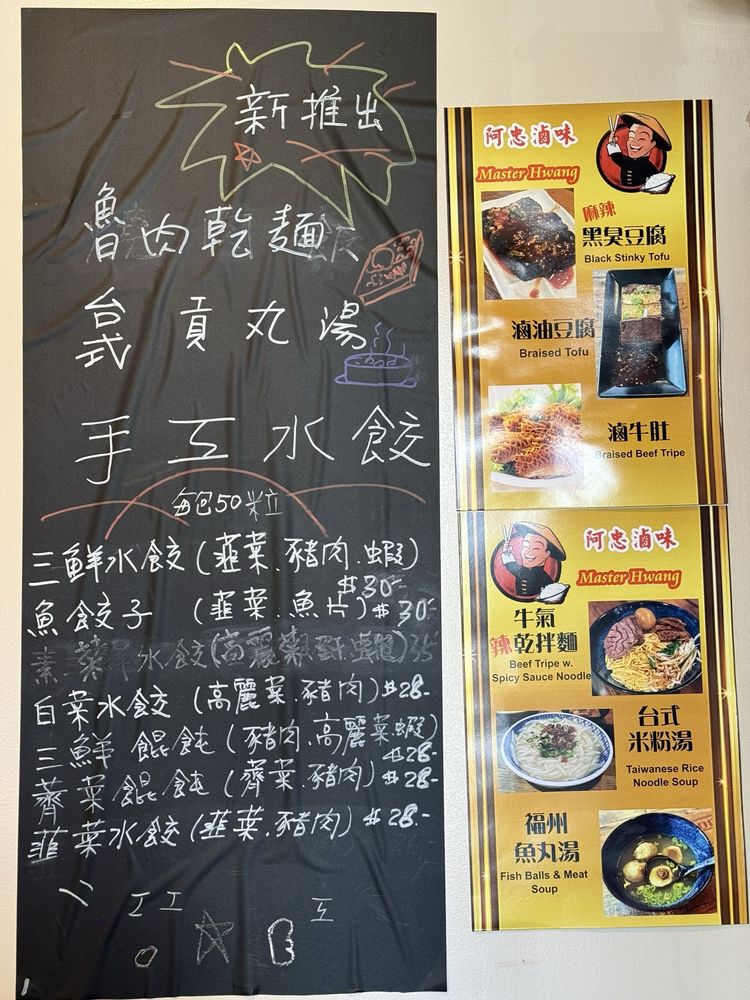 新推出
魯肉乾麵
台式 貢丸湯
手工水餃
每包50粒
三鮮水餃(韮菜.豬肉.蝦)
$30-
魚餃子 (韮菜.魚片)$30-
白菜水餃 (高麗菜.豬肉)$28-
三鮮餛飩(豬肉.高麗菜.蝦)
$28-
薺菜餛飩(薺菜.豬肉)$28-
韮菜水餃(韮菜.豬肉)$28-
阿忠滷味
Master Hwang
麻辣
黑臭豆腐
Black Stinky Tofu
滷油豆腐
Braised Tofu
滷牛肚
Braised Beef Tripe
阿忠滷味
Master Hwang
牛氣
辣乾拌麵
Beef Tripe w.
Spicy Sauce Noodle
台式
米粉湯
Taiwanese Rice
Noodle Soup
福州
魚丸湯
Fish Balls & Meat
Soup